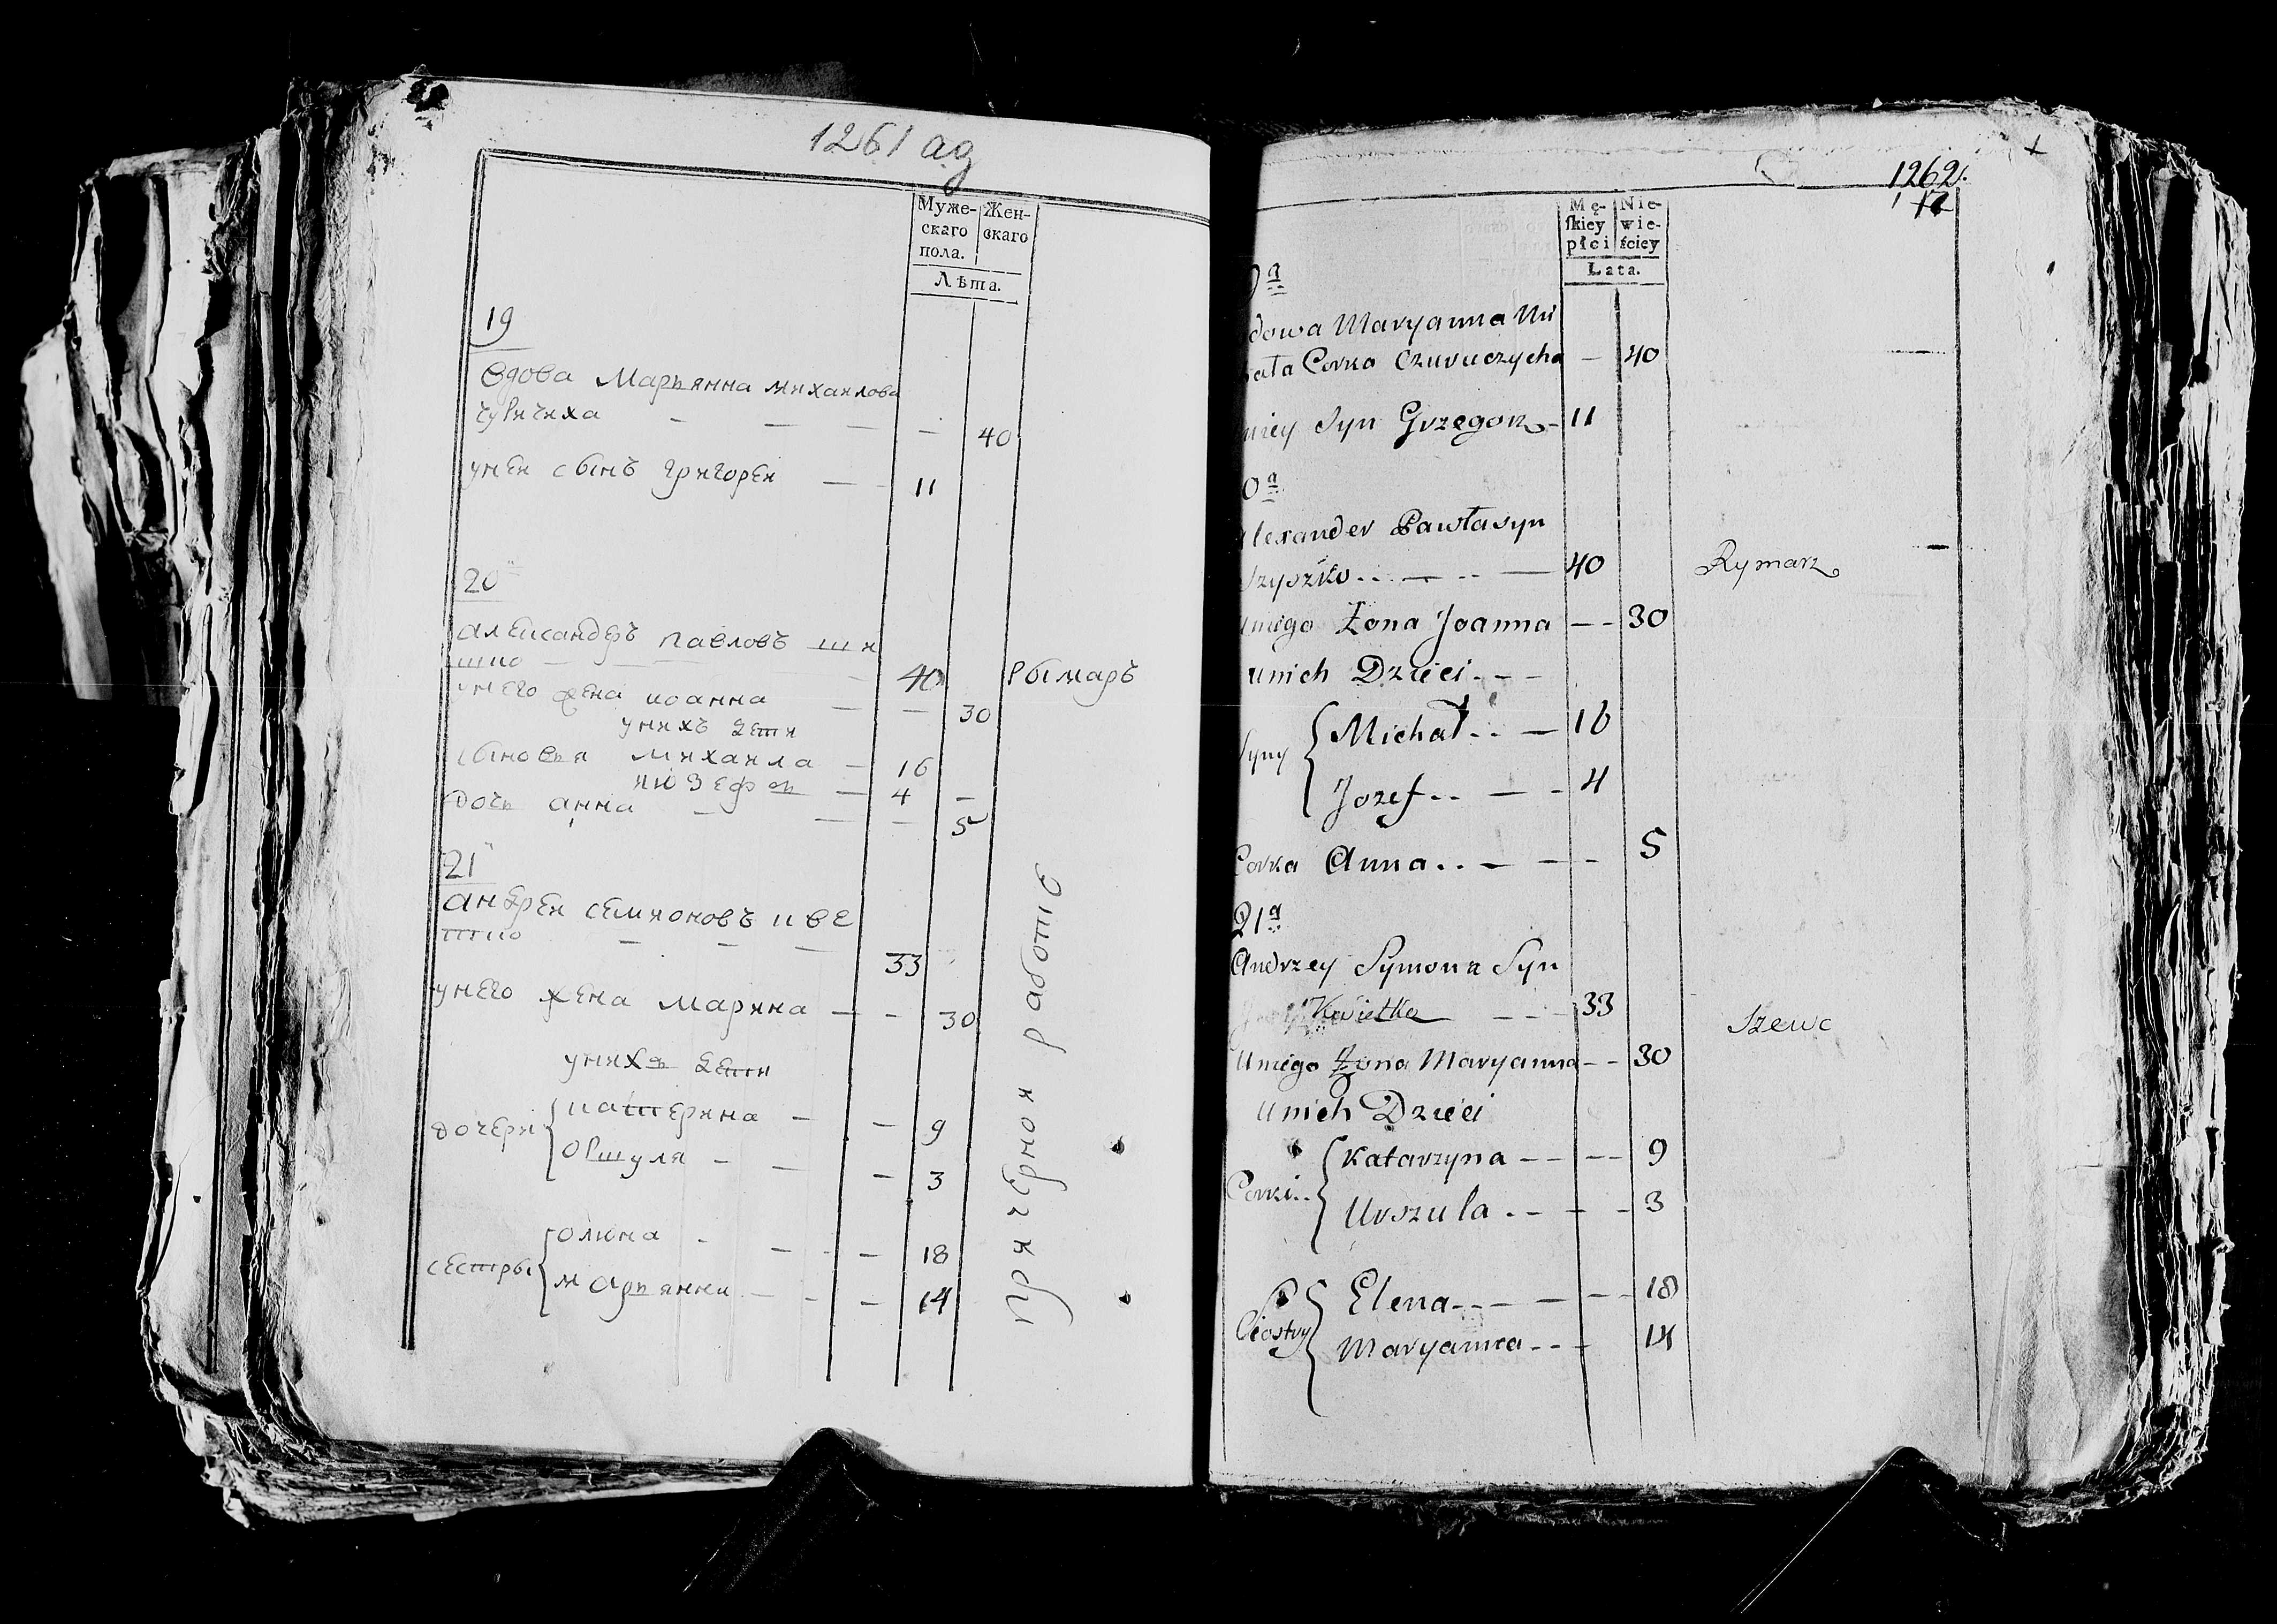 1261 ад
Муже- Жен-
скаго скаго
пола.
Лѣта.
19
вдова Марьянна михаилова
чуричиха — — — — 40
унеи сынъ григореи — — 11
20
александеръ павловъ ши
шко — — — 40 рымаръ
унего жена иоанна — — 30
унихъ дети
сыновья михаила — 16
июзефъ — 4 —
дочь анна — — — 5
21
андреи семионовъ кве
тко — — — 33
унего жена марина — — 30
унихъ дети
дочери { катерина — — 9
оршуля — — — 3
сестры { олюна - — - — 18
марьянна — - — 14
при черной работе
1262.
17
Mę- Nie-
ſkiey wie-
płci ściey
Lata.
9ª
dowa Maryanna Mi
ała Corka Czuruczycha — 40
niey Syn Grzegorz - 11
0ª
lexander Pawła syn
Szyszko . . — . . — 40 Rymarz
uniego Żona Joanna — - 30
unich Dzieci . - -
Syny { Michał . . — 16
Jozef . . — - 4
Corka Anna . . — — - 5
21ª
Andrzey Symona Syn
Kwietka — - - - 33 Szewc
Uniego Żona Maryanna - - 30
Unich Dzieci
Corki . . { Katarzyna - - - - 9
Urszula . - - - - 3
Siostry { Elena - - — - - 18
Maryanna - - - 14